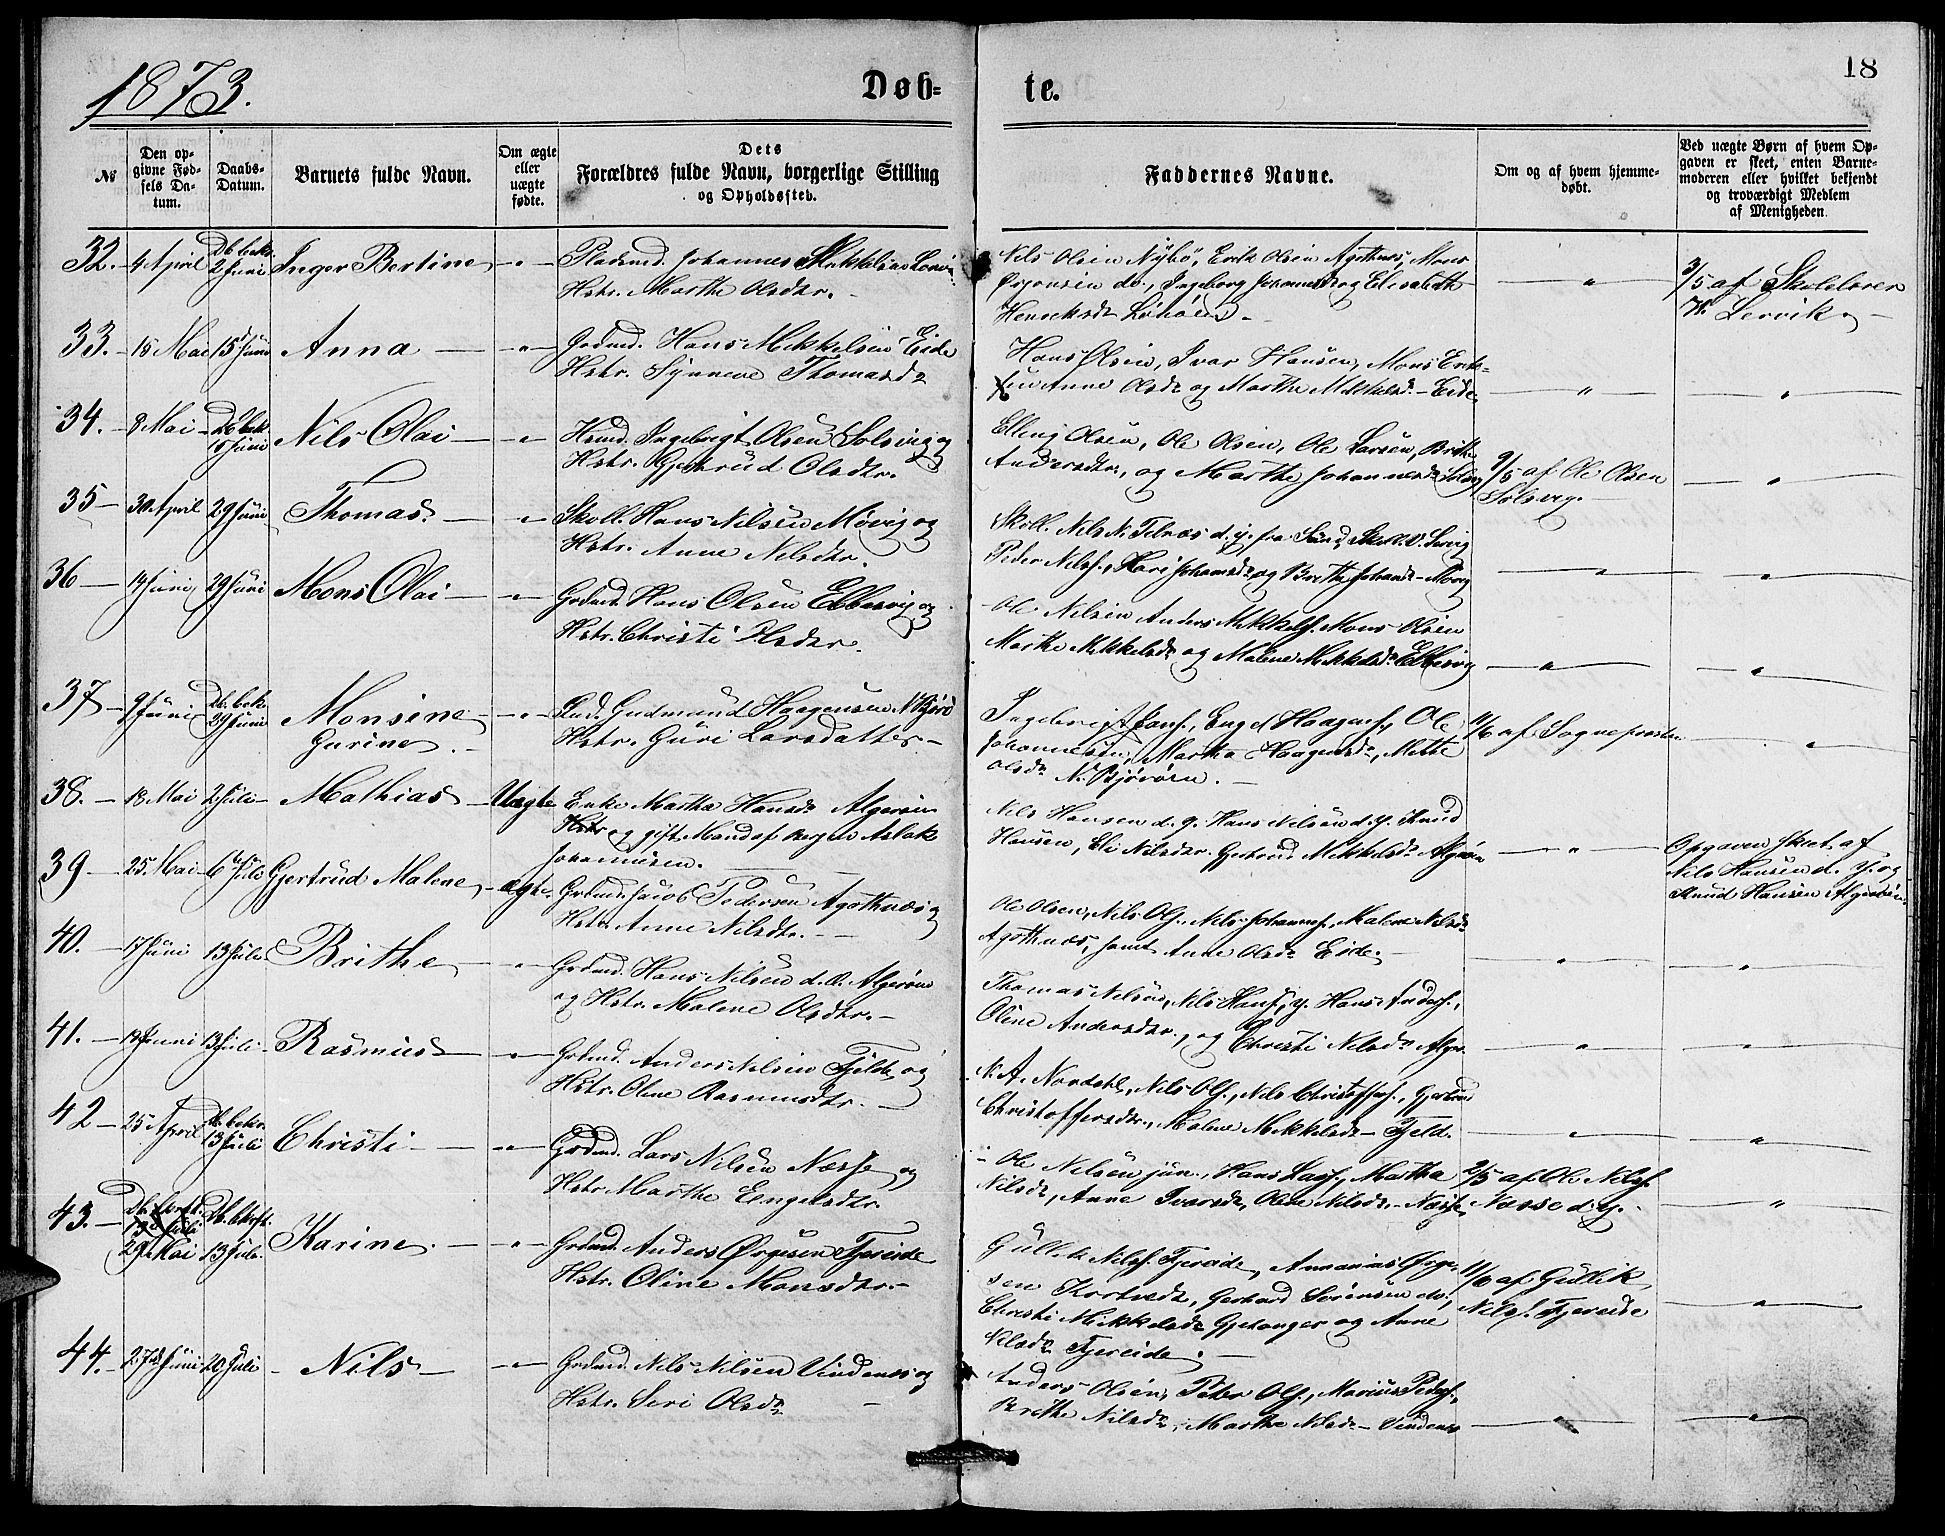 1873.
Døb=
te.
18
№
Den op=
givne Fød=
sels Da=
tum.
Daabs=
Datum.
Barnets fulde Navn.
Om ægte
eller
uægte
fødte.
Dets
Forældres fulde Navn, borgerlige Stilling
og Opholdssted.
Faddernes Navne.
Om og af hvem hjemme=
døbt.
Ved uægte Børn af hvem Op=
gaven er skeet, enten Barne=
moderen eller hvilket bekjendt
og troværdigt Medlem
af Menigheden.
32. 4 April Db. bekr. 2 Juni Inger Bertine
Pladsmd. Johannes
Hstr. Marthe Olsdtr.
Nils Olsen Nybø, Erik Olsen Agotnes, Mons
do., Ingeborg og Elisabeth
Henriksdr
3/5 af Skolelærer
Lervik
33. 15 Mai 15d Juni Anna
Grdmd. Hans Mikkelsen Eide
Hstr. Synneve Thomasdr
Hans Olsen, Ivar Hansen, Mons Erik=
sen Anne Olsdr og Marthe Mikkelsdr Eide
34. 8 Mai Db. bek. 15 Juni Nils Olai
Husmd. Ingebrigt Olsen Solsvig og
Hstr. Gjertrud Olsdtr.
Elling Olsen, Ole Olsen, Ole Larsen, Brithe
Andersdtr., og Marthe Johannesdr Solsvig
9/5 af Ole Olsen
Solsvig.
35 30 April 29 Juni Thomas.
Skoll. Hans Nilsen Møvig og
Hstr. Anne Nilsdtr.
Skoll. Nils N. Telnæs d. y. fra Sund, Skoll.
Peder Nilss., Kari Johansdr og Brithe Møvig
36 14 Juni 29 Juni Mons Olai
Grdmd. Hans Olsen Ebbesvig og
Hstr. Christi Olsdtr.
Ole Nilsen Anders Mikkels. Mons Olsen
Marthe Mikkelsdr og Malene Mikkelsdr Ebbesvig
37 9 Juni Db. bek. 29 Juni Monsine
Gurine
Gudmund Haagensen N. Bjørø
Hstr. Guri Larsdatter
Ingebrigt Engel Haagens., Ole
Johannessen, Martha Haagensdr, Mette
Olsdr N. Bjørøen.
11/6 af Sognepresten
38. 18 Mai 2 Juli Mathias Uægte
Enke Martha Hansdr Algerøen
og gift Mand af Bergen Aslak
Johannesen.
Nils Hansen d. y. Hans Nilsen d. y. Knud
Hansen, Eli Nilsdtr. Gjertrud Mikkelsdr Algerøen
Opgaven skeet af
Nils Hansen d. y. og
Knud Hansen Algerøen
39 25 Mai 6te Juli Gjertrud Malene ægte
Grdmd. Jacob Pedersen Agothnæs og
Hstr. Anne Nilsdtr.
Ole Olsen, Nils Ols., Nils Johannes., Malene Nilsdr
Agothnæs, samt Anne Olsdr Eide.
40. 17 Juni 13 Juli Brithe
Grdmd. Hans Nilsen d. Æ. Algerøen
og Hstr. Malene Olsdtr.
Thomas Nilsen, Nils Hans. y. Hans Anders.,
Oline Andersdtr., og Christi Nilsdr Alger.
41. 13 Juli Rasmus
Grdmd. Anders Nilsen Fjeld og
Hstr. Oline Rasmusdtr.
N. A. Nordahl, Nils Ols., Nils Christoffers., Gjertrud
Christoffersdtr., Malene Mikkelsdr Fjeld.
42 25 April Db. bekr. 13 Juli Christi
Grdmd. Lars Nilsen Næsse og
Hstr. Marthe Engelsdtr.
Ole Nilsen jun., Hans Lars., Martha
Nilsdr, Anne Ivarsdr, Oline Nilsdr Næsse
2/5 af Ole Nilss.
Næsse d. y.
43. 29 Mai 13 Juli Karine.
Grdmd. Anders Ørgesen Fjereide
Hstr. Oline Monsdtr.
Gullik Nilss. Fjereide, Ananias Ørge=
sen Gerhard Sørensen do.,
Christi Mikkelsdr Gjetanger og Anne
Nilsdr Fjereide.
11/6 af Gullik
Nilss. Fjereide
44. 27de Juni 20 Juli Nils
Grdmd. Nils Nilsen Vindenes og
Hstr. Siri Olsdr
Anders Olsen, Peter Ols., Marius Peders.
Brethe Nilsdr, Marthe Nilsdr Vindenes